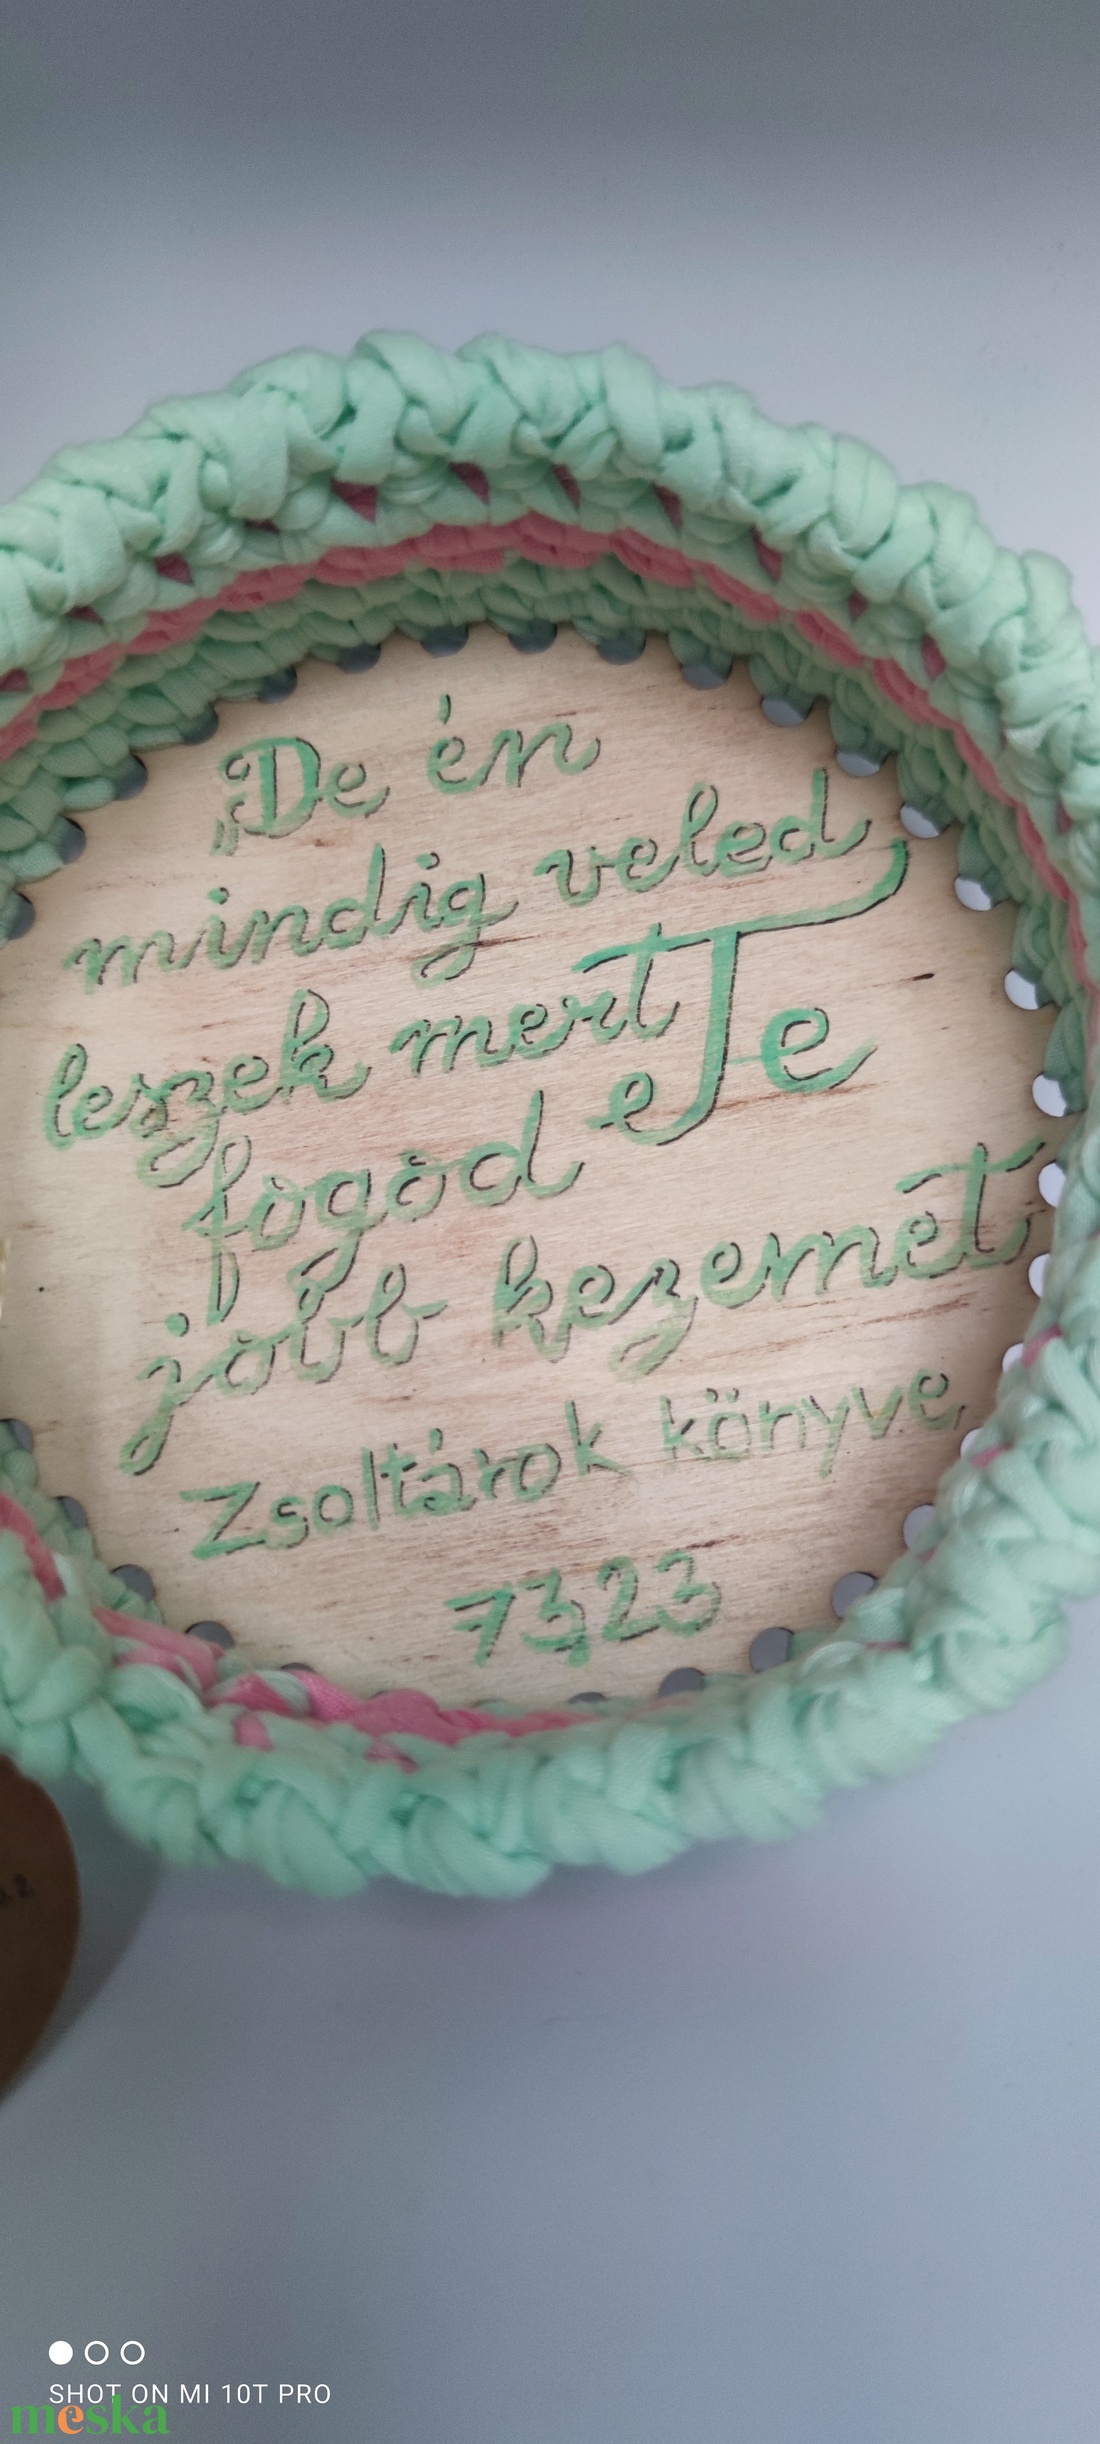 „De én
mindig veled
leszek mert Te
fogod
jobb kezemet
Zsoltárok könyve
73,23
SHOT ON MI 10T PRO
meska